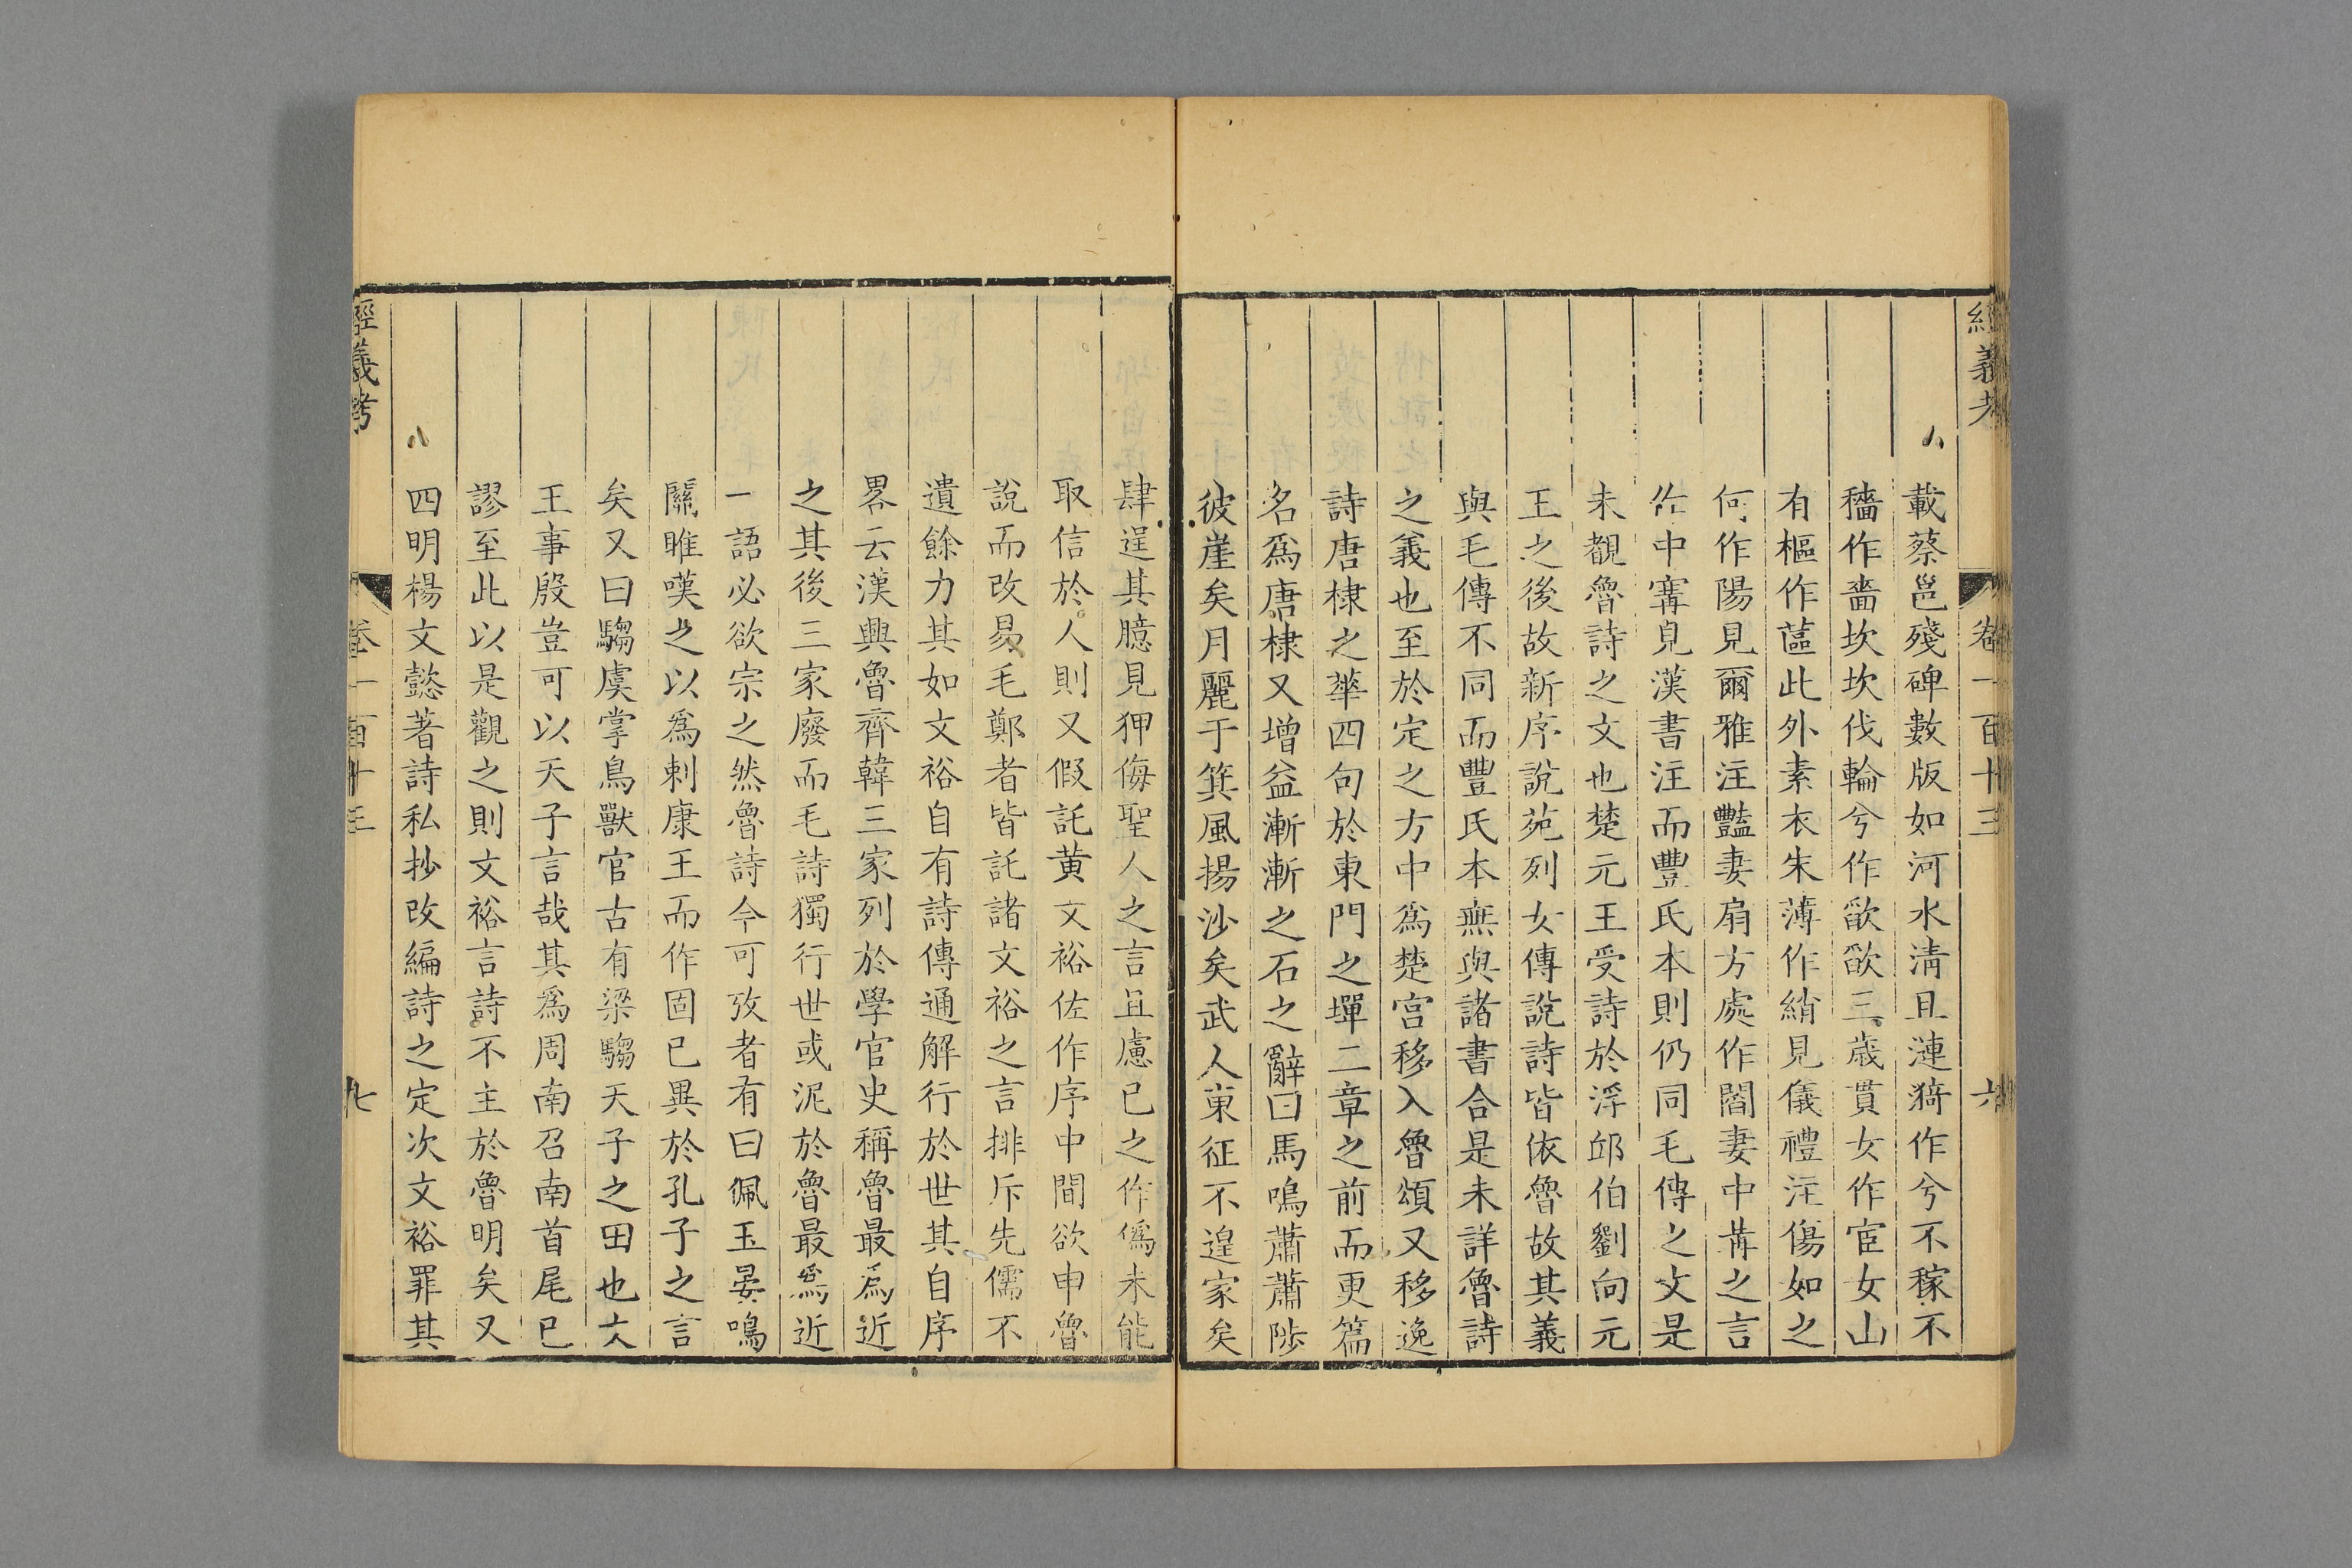 經義考 卷一百十三 六
載蔡邕殘碑數版如河水清且漣猗作兮不稼不
穡作嗇坎坎伐輪兮作欿欿三歲貫女作宦女山
有樞作蓲此外素衣朱薄作綃見儀禮注傷如之
何作陽見爾雅注豔妻扇方處作閻妻中冓之言
作中㝅見漢書注而豐氏本則仍同毛傳之文是
未覩魯詩之文也楚元王受詩於浮邱伯劉向元
王之後故新序說苑列女傳說詩皆依魯故其義
與毛傳不同而豐氏本無與諸書合是未詳魯詩
之義也至於定之方中爲楚宮移入魯頌又移逸
詩唐棣之華四句於東門之墠二章之前而更篇
名爲唐棣又增益漸漸之石之辭曰馬鳴蕭蕭陟
彼崖矣月麗于箕風揚沙矣武人東征不遑家矣
肆逞其臆見狎侮聖人之言且慮已之作僞未能
取信於人則又假託黃文裕佐作序中間欲申魯
說而改易毛鄭者皆託諸文裕之言排斥先儒不
遺餘力其如文裕自有詩傳通解行於世其自序
畧云漢興魯齊韓三家列於學官史稱魯最爲近
之其後三家廢而毛詩獨行世或泥於魯最爲近
一語必欲宗之然魯詩今可攷者有曰佩玉晏鳴
關雎嘆之以爲刺康王而作固已異於孔子之言
矣又曰騶虞掌鳥獸官古有梁騶天子之田也文
王事殷豈可以天子言哉其爲周南召南首尾已
謬至此以是觀之則文裕言詩不主於魯明矣又
四明楊文懿著詩私抄改編詩之定次文裕罪其
經義考 卷一百十三 七